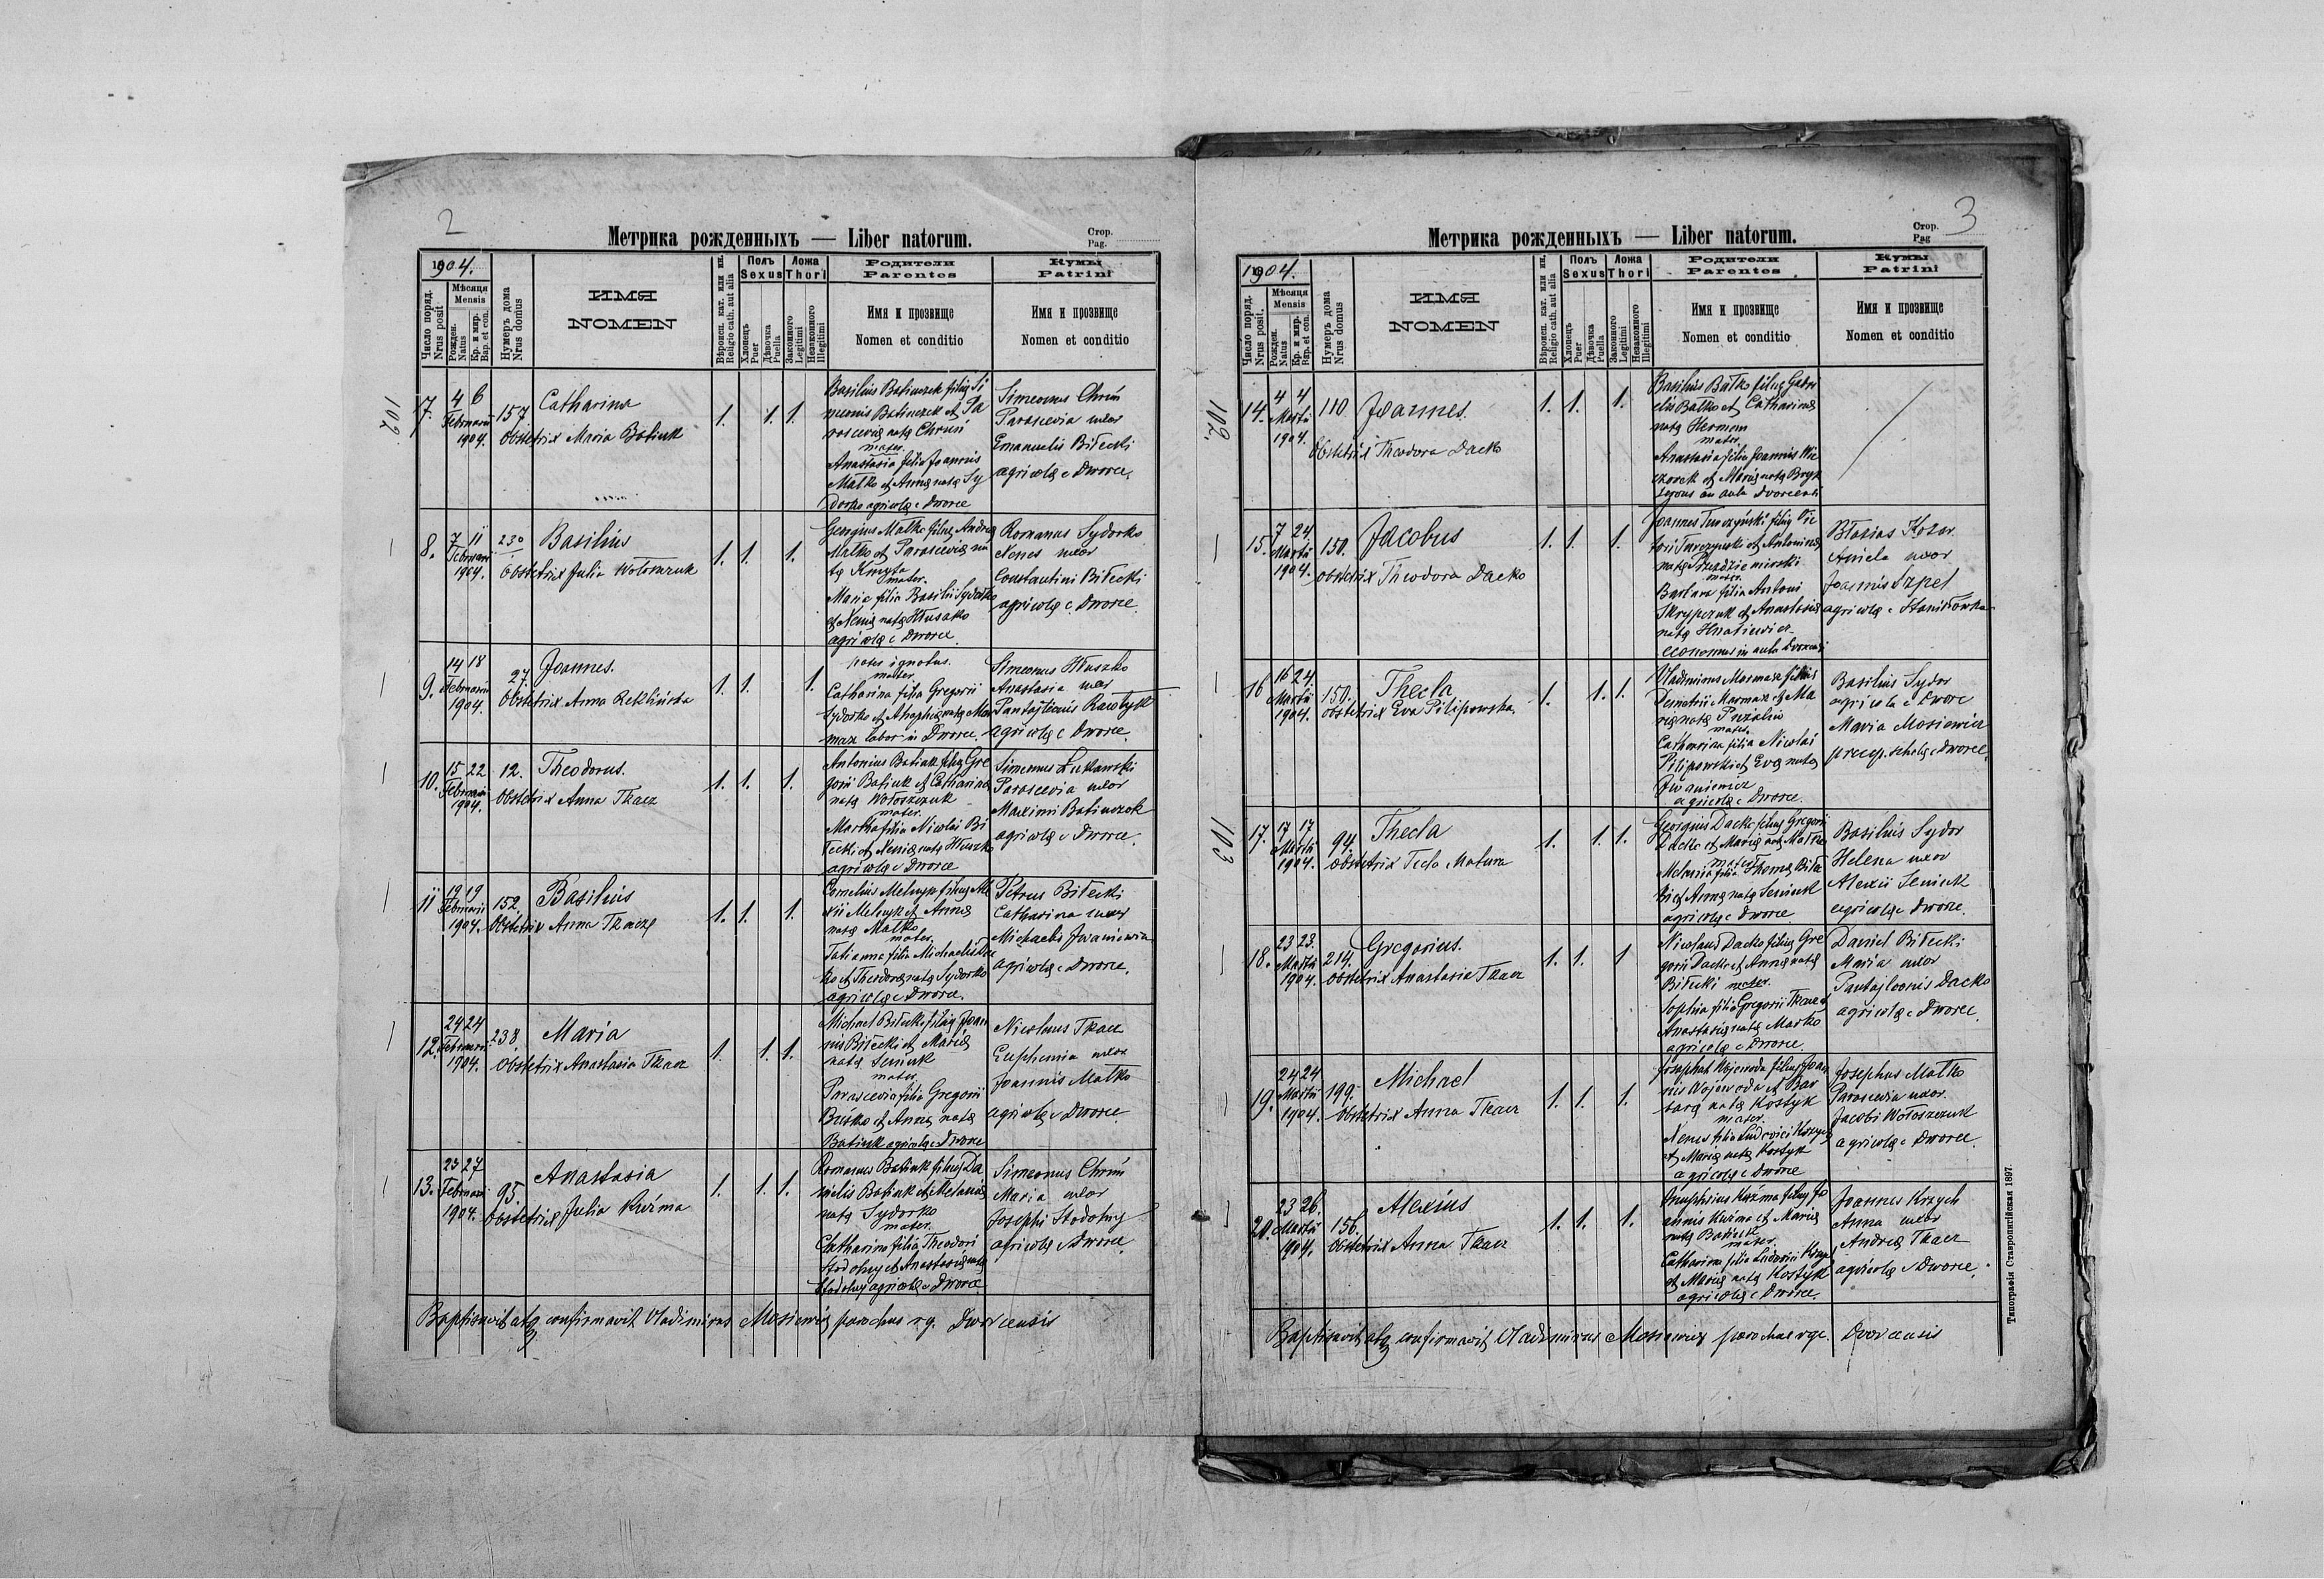 2
Метрика рожденныхъ — Liber natorum.
Стор.
Pag.
1904.
Число поряд.
Nrus posit
Мѣсяця
Mensis
Рожден.
Natus
Кр. и мир.
Bap. et con.
Нумеръ дома
Nrus domus
ИМЯ
NOMEN
Вѣроисп. кат. или ин.
Religio cath. aut alia
Полъ
Sexus
Хлопецъ
Puer
Дѣвочка
Puella
Ложа
Thori
Законного
Legitimi
Незаконного
Illegitimi
Родители
Parentes
Имя и прозвище
Nomen et conditio
Кумы
Patrini
Имя и прозвище
Nomen et conditio
102.
7.
4 6
Februarii
1904.
157
Catharina
Obstetrix Maria Batiuk
1. 1. 1.
Basilius Batiuczek filius Si
meonis Batiuczek et Pa
rasceviae nata Chruń
mater.
Anastasia filia Joannis
Małko et Anna nata Sy
dorko agricolae e Dworce
Simeonus Chruń
Parascevia uxor
Emanuelis Biłecki
agricolae e Dworce.
8.
7 11
Februarii
1904.
230
Basilius
Obstetrix Julia
1. 1. 1.
Georgius Małko filius Andreae
Małko et Parasceviae na
ta Kmyta
mater.
Maria filia Basilii Sydorko
et Xenia nata Hłuszko
agricolae e Dworce.
Romanus Sydorko
Xenes uxor
Constantini Biłecki
agricolae e Dworce.
9.
14 18
Februarii
1904.
27.
Joannes.
Obstetrix Anna Reklińska
1. 1. 1.
pater ignotus.
mater.
Catharina filia Gregorii
Sydorko et Agaphia nata Mar
max labor in Dworce.
Simeonus Hłuszko
Anastasia uxor
Pantaleonis
agricolae e Dworce.
10.
15 22
Februarii
1904.
12.
Theodorus.
Obstetrix Anna Tkacz
1. 1. 1.
Antonius Batiuk filius Gre
gorii Batiuk et Catharinae
nata Wołoszczuk
mater.
Martha filia Nicolai Bi
łecki et Xenia nata Hłuszko
agricolae e Dworce
Simeonus Lukawski
Parascevia uxor
Maximi Batiuczok
agricolae e Dworce.
11
19 19
Februarii
1904.
152.
Basilius
Obstetrix Anna Tkacz
1. 1. 1.
Cornelius Melnyk filius Ale
xii Melnyk et Anna
nata Małko
mater.
Tatianna filia Michaelis
ko et Theodora nata Sydorko
agricolae e Dworce.
Petrus Biłecki
Catharina uxor
Michaelis Iwaniewicz
agricolae e Dworce.
12.
24 24
Februarii
1904.
238.
Maria
Obstetrix Anastasia Tkacz
1. 1. 1.
Michael Biłecki filius Joan
nis Biłecki et Maria
nata Seniuk
mater.
Parascevia filia Gregorii
et Anna nata
Batiuk agricolae e Dworce
Nicolaus Tkacz
Euphemia uxor
Joannis Małko
agricolae e Dworce.
13.
25 27
Februarii
1904.
95.
Anastasia
Obstetrix Julia Kuźma
1. 1. 1.
Romanus Batiuk filius Da
nielis Batiuk et Melania
nata Sydorko
mater.
Catharina filia Theodori
Stodolny et Anastasia nata
Stodolny agricolae e Dworce.
Simeonus Chruń
Maria uxor
Josephi Stodolny
agricolae e Dworce.
Baptisavit atq confirmavit Vladimirus Mosiewicz parochus rg. Dworcensis
3
Метрика рожденныхъ — Liber natorum.
Стор.
Pag
1904.
Число поряд.
Nrus posit.
Мѣсяця
Mensis
Рожден.
Natus
Кр. и мир.
Bap. et con.
Нумеръ дома
Nrus domus
ИМЯ
NOMEN
Вѣроисп. кат. или ин.
Religio cath. aut alia
Полъ
Sexus
Хлопецъ
Puer
Дѣвочка
Puella
Ложа
Thori
Законного
Legitimi
Незаконного
Illegitimi
Родители
Parentes
Имя и прозвище
Nomen et conditio
Кумы
Patrini
Имя и прозвище
Nomen et conditio
102.
14.
4 4
Martii
1904.
110
Joannes.
Obstetrix Theodora Dacko
1. 1. 1.
Basilius Batko filius Gabri
elis Batko et Catharina
nata Herman
mater.
Anastasia filia Joannis Wie
czorek et Maria nata Bryk
15.
7 24
Martii
1904.
150.
Jacobus
Obstetrix Theodora Dacko
1. 1. 1.
Joannes Turczyński filius Vic
tori Turczyński et Antonina
nata
mater.
Barbara filia Antoni
Skrypczuk et Anastasia
nata Hnatiewicz
economus in aula Dvorcensi
Błasius Kozar
Aniela uxor
Joannis Szpet
agricolae e Stanisłowka
16
16 24.
Martii
1904.
150.
Thecla
Obstetrix Eva Pilipowska
1. 1. 1.
Vladimirus Marmax filius
Demetrii Marmax et Ma
ria nata
mater.
Catharina filia Nicolai
Pilipowski et Eva nata
Iwaniewicz
agricolae e Dworce.
Basilius Sydor
agricola e Dworce
Maria Mosiewicz
precep. scholae e Dworce.
103
17.
17 17
Martii
1904.
94.
Thecla
Obstetrix Tecla Matura
1. 1. 1.
Georgius Dacko filius Gregorii
Dacko et Maria nata Małko
mater
Melania filia Thoma Biłe
cki et Anna nata Seniuk
agricolae e Dworce
Basilius Sydor
Helena uxor
Alexii Seniuk
agricolae e Dworce.
18.
23 23.
Martii
1904.
214.
Gregorius.
Obstetrix Anastasia Tkacz
1. 1. 1
Nicolaus Dacko filius Gre
gorii Dacko et Anna nata
Biłecki mater.
Sophia filia Gregorii Tkacz et
Anastasia nata Małko
agricolae e Dworce.
Daniel Biłecki
Maria uxor
Pantaleonis Dacko
agricolae e Dworce.
19.
24 24
Martii
1904.
199.
Michael
Obstetrix Anna Tkacz
1. 1. 1.
Josaphat Wojewoda filius Joan
nis Wojewoda et Bar
bara nata Kostyk
mater.
Xenes filia Ludovici Krzych
et Maria nata Kostyk
agricolae e Dworce
Josephus Małko
Parascevia uxor.
Jacobi Wołoszczuk
agricolae e Dworce.
20.
23 26.
Martii
1904.
156.
Alexius
Obstetrix Anna Tkacz
1. 1. 1.
Onuphrius Kuźma filius Jo
annis Kuźma et Maria
nata Batiuk
mater.
Catharina filia Ludovici Krzych
et Maria nata Kostyk
agricolae e Dworce.
Joannes Krzych
Anna uxor
Andrea Tkacz
agricolae e Dworce.
Baptisavit atq confirmavit Vladimirus Mosiewicz parochus rgc. Dvorcensis
Типографія Ставропигійская 1897.